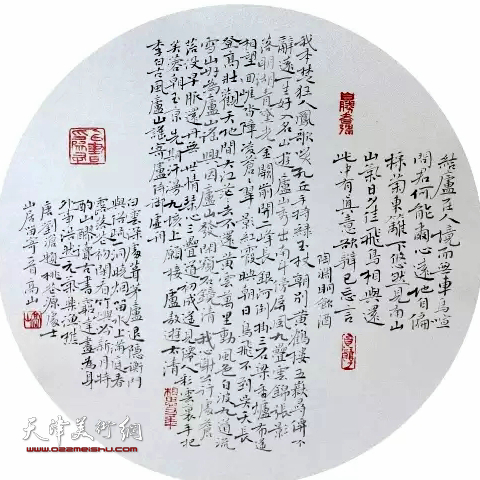 結廬在人境而無車馬喧
問君何能爾心遠地自偏
採菊東籬下悠然見南山
山氣日夕佳飛鳥相與還
此中有真意欲辯已忘言
陶淵明飲酒
我本楚狂人鳳歌笑孔丘手持綠玉杖朝別黃鶴樓五嶽尋仙不
辭遠一生好入名山遊廬山秀出南斗傍屏風九疊雲錦張影
落明湖青黛光金闕前開二峰長銀河倒掛三石梁香爐瀑布遙
相望迴崖沓障凌蒼蒼翠影紅霞映朝日鳥飛不到吳天長
登高壯觀天地間大江茫茫去不還黃雲萬里動風色白波九道流
雪山好為廬山謠興因廬山發閑窺石鏡清我心謝公行處蒼
苔沒早服還丹無世情琴心三疊道初成遙見仙人彩雲裏手把
芙蓉朝玉京先期汗漫九垓上願接盧敖遊太清
李白古風廬山謠寄盧侍御虛舟
白雲深處葺茅廬退隱衡門
與俗疏一洞曉煙留水上滿庭春
露落花初閑看竹嶼吟新月特
酌山醪讀古書窮達盡為身
外事浩然元氣樂漁樵
唐劉滄題桃源處士
山居留寄 高山
天津美術網
www.022meishu.com